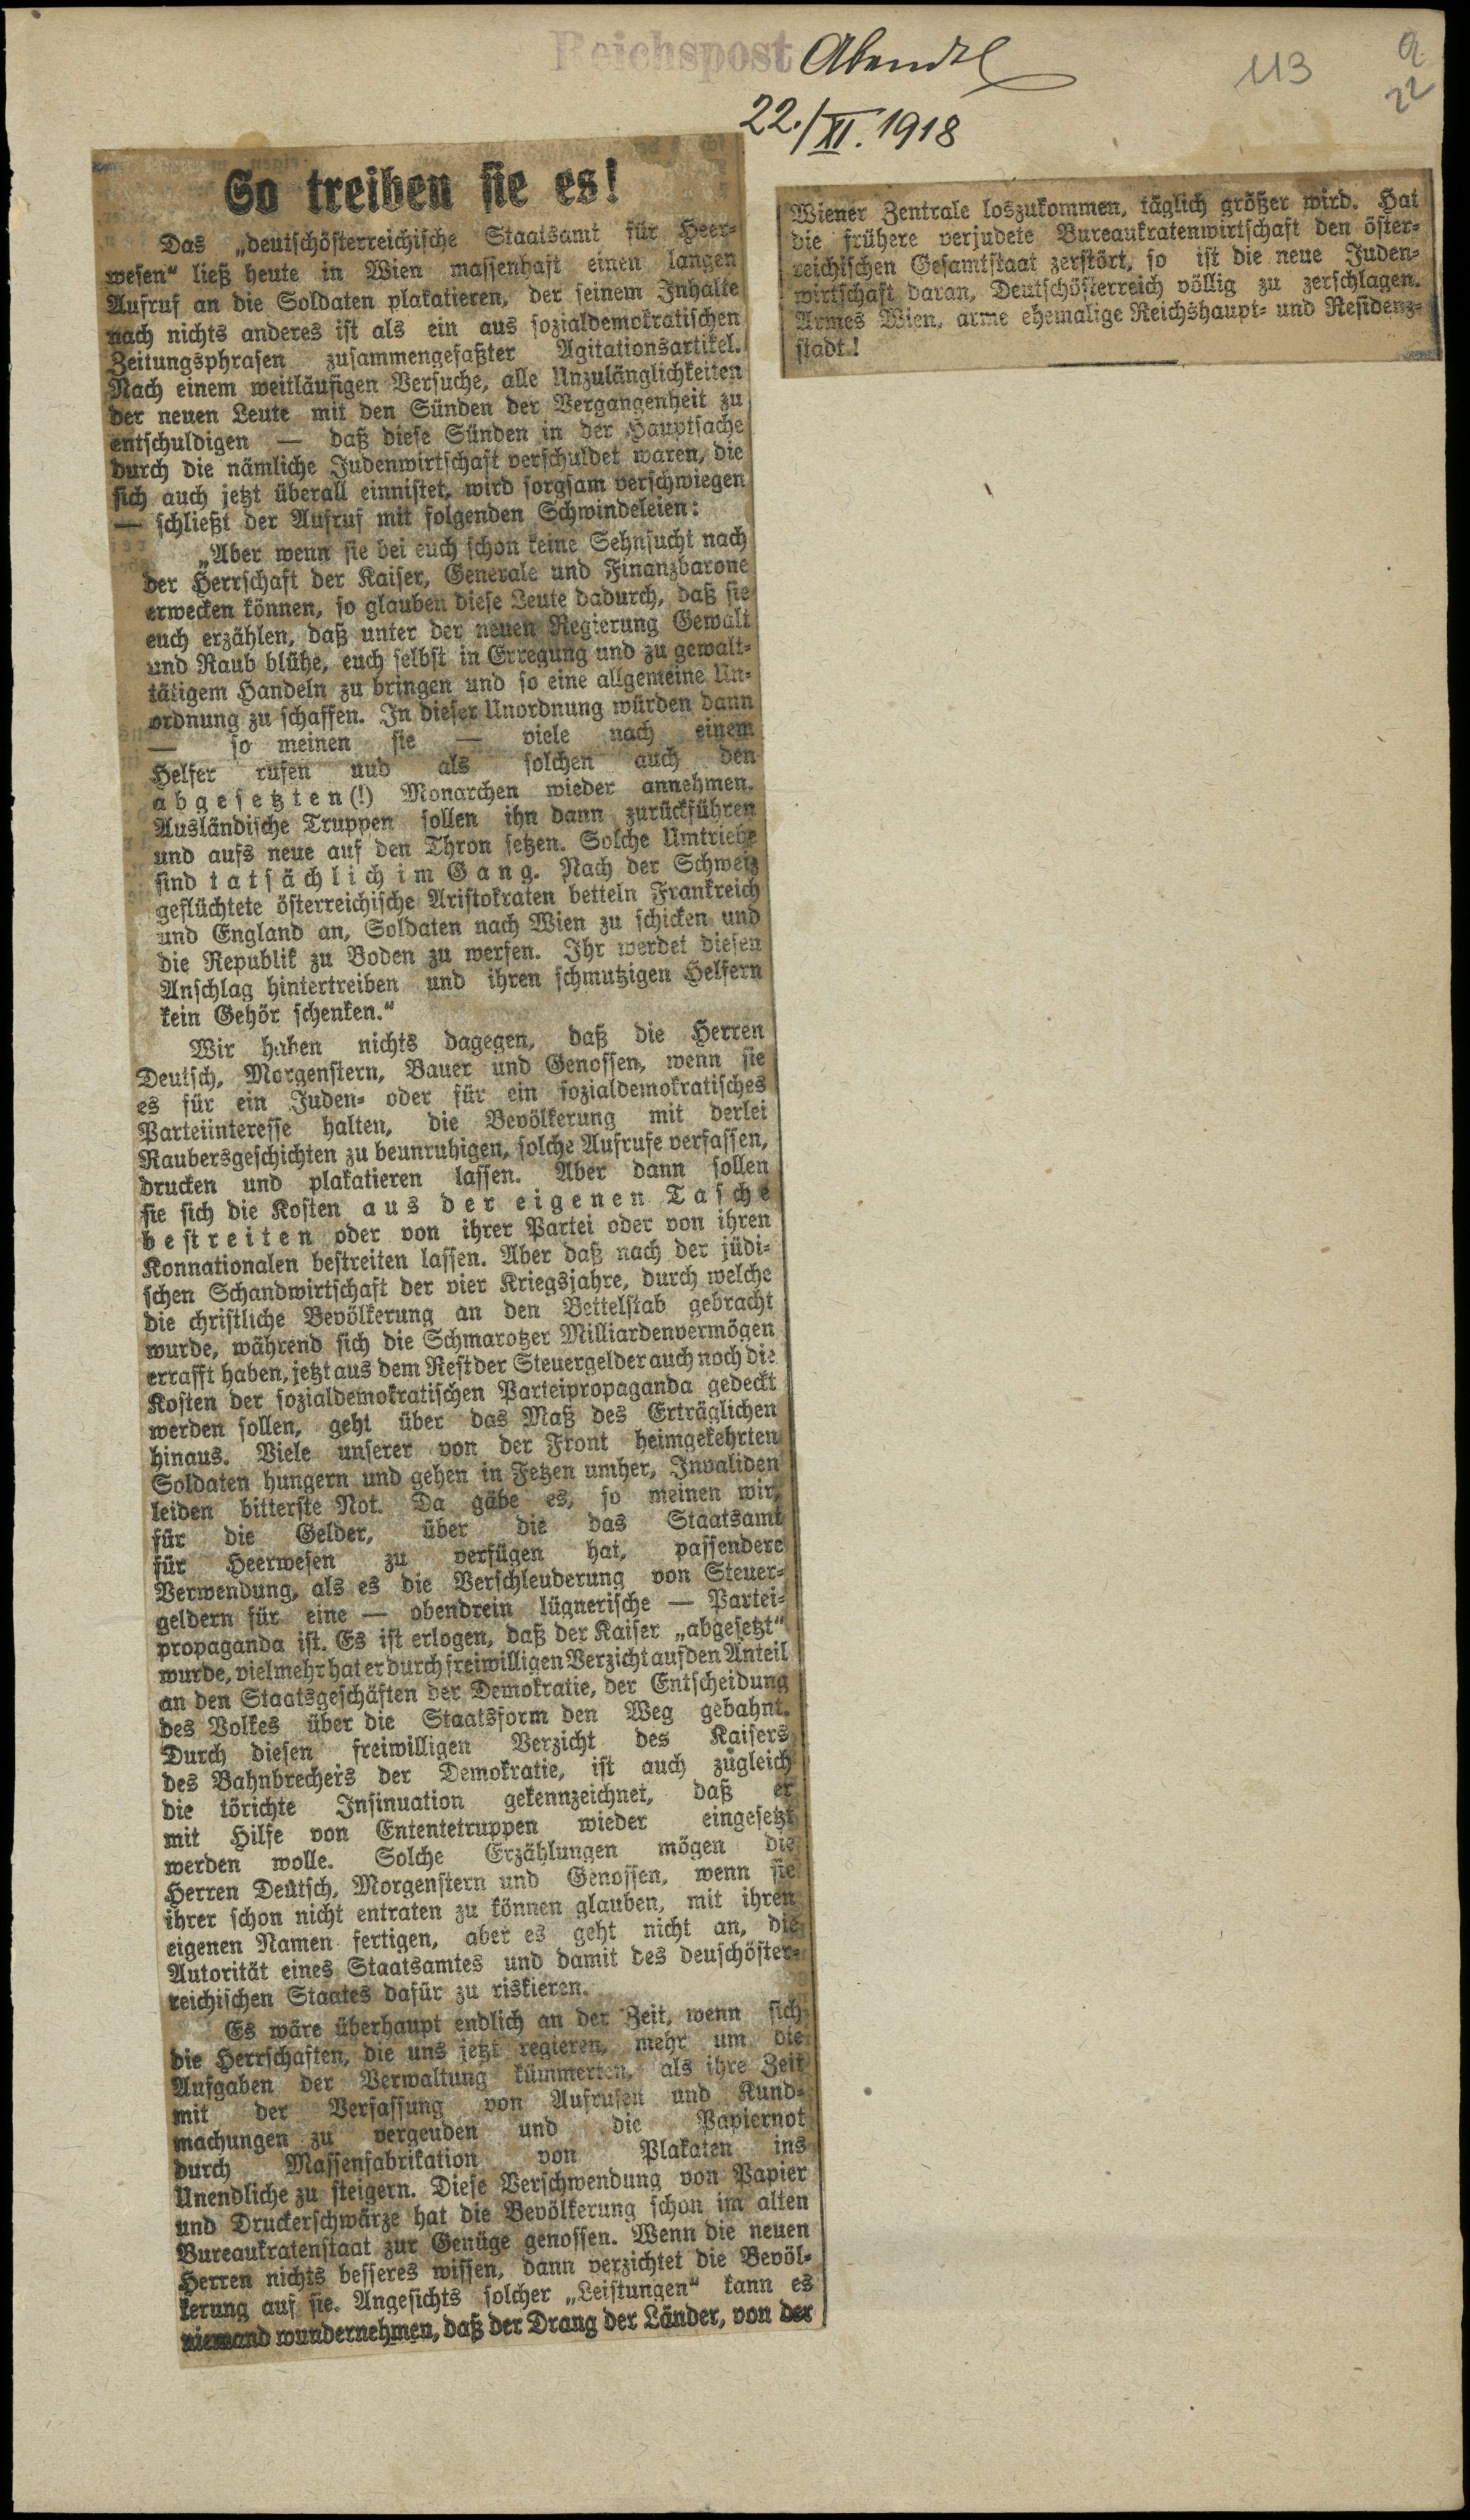 Reichspost Abendbl
22./XI. 1918
113
22
So treiben sie es!
Das „deutschösterreichische Staatsamt für Heer-
wesen“ ließ heute in Wien massenhaft einen langen
Aufruf an die Soldaten plakatieren, der seinem Inhalte
nach nichts anderes ist als ein aus sozialdemokratischen
Zeitungsphrasen zusammengefaßter Agitationsartikel.
Nach einem weitläufigen Versuche, alle Unzulänglichkeiten
der neuen Leute mit den Sünden der Vergangenheit zu
entschuldigen — daß diese Sünden in der Hauptsache
durch die nämliche Judenwirtschaft verschuldet waren, die
sich auch jetzt überall einnistet, wird sorgsam verschwiegen
— schließt der Aufruf mit folgenden Schwindeleien:
„Aber wenn sie bei euch schon keine Sehnsucht nach
der Herrschaft der Kaiser, Generale und Finanzbarone
erwecken können, so glauben diese Leute dadurch, daß sie
euch erzählen, daß unter der neuen Regierung Gewalt
und Raub blühe, euch selbst in Erregung und zu gewalt-
tätigem Handeln zu bringen und so eine allgemeine Un-
ordnung zu schaffen. In dieser Unordnung würden dann
— so meinen sie — viele nach einem
Helfer rufen und als solchen auch den
abgesetzten (!) Monarchen wieder annehmen.
Ausländische Truppen sollen ihn dann zurückführen
und aufs neue auf den Thron setzen. Solche Umtriebe
sind tatsächlich im Gang. Nach der Schweiz
geflüchtete österreichische Aristokraten betteln Frankreich
und England an, Soldaten nach Wien zu schicken und
die Republik zu Boden zu werfen. Ihr werdet diesen
Anschlag hintertreiben und ihren schmutzigen Helfern
kein Gehör schenken.“
Wir haben nichts dagegen, daß die Herren
Deutsch, Morgenstern, Bauer und Genossen, wenn sie
es für ein Juden- oder für ein sozialdemokratisches
Parteiinteresse halten, die Bevölkerung mit derlei
Raubersgeschichten zu beunruhigen, solche Aufrufe verfassen,
drucken und plakatieren lassen. Aber dann sollen
sie sich die Kosten aus der eigenen Tasche
bestreiten oder von ihrer Partei oder von ihren
Konnationalen bestreiten lassen. Aber daß nach der jüdi-
schen Schandwirtschaft der vier Kriegsjahre, durch welche
die christliche Bevölkerung an den Bettelstab gebracht
wurde, während sich die Schmarotzer Milliardenvermögen
errafft haben, jetzt aus dem Rest der Steuergelder auch noch die
Kosten der sozialdemokratischen Parteipropaganda gedeckt
werden sollen, geht über das Maß des Erträglichen
hinaus. Viele unserer von der Front heimgekehrten
Soldaten hungern und gehen in Fetzen umher, Invaliden
leiden bitterste Not. Da gäbe es, so meinen wir,
für die Gelder, über die das Staatsamt
für Heerwesen zu verfügen hat, passendere
Verwendung, als es die Verschleuderung von Steuer-
geldern für eine — obendrein lügnerische — Partei-
propaganda ist. Es ist erlogen, daß der Kaiser „abgesetzt“
wurde, vielmehr hat er durch freiwilligen Verzicht auf den Anteil
an den Staatsgeschäften der Demokratie, der Entscheidung
des Volkes über die Staatsform den Weg gebahnt.
Durch diesen freiwilligen Verzicht des Kaisers,
des Bahnbrechers der Demokratie, ist auch zugleich
die törichte Insinuation gekennzeichnet, daß er
mit Hilfe von Ententetruppen wieder eingesetzt
werden wolle. Solche Erzählungen mögen die
Herren Deutsch, Morgenstern und Genossen, wenn sie
ihrer schon nicht entraten zu können glauben, mit ihren
eigenen Namen fertigen, aber es geht nicht an, die
Autorität eines Staatsamtes und damit des deuschöster-
reichischen Staates dafür zu riskieren.
Es wäre überhaupt endlich an der Zeit, wenn sich
die Herrschaften, die uns jetzt regieren, mehr um die
Aufgaben der Verwaltung kümmerten, als ihre Zeit
mit der Verfassung von Aufrufen und Kund-
machungen zu vergeuden und die Papiernot
durch Massenfabrikation von Plakaten ins
Unendliche zu steigern. Diese Verschwendung von Papier
und Druckerschwärze hat die Bevölkerung schon im alten
Bureaukratenstaat zur Genüge genossen. Wenn die neuen
Herren nichts besseres wissen, dann verzichtet die Bevöl-
kerung auf sie. Angesichts solcher „Leistungen“ kann es
niemand wundernehmen, daß der Drang der Länder, von der
Wiener Zentrale loszukommen, täglich größer wird. Hat
die frühere verjudete Bureaukratenwirtschaft den öster-
reichischen Gesamtstaat zerstört, so ist die neue Juden-
wirtschaft daran, Deutschösterreich völlig zu zerschlagen.
Armes Wien, arme ehemalige Reichshaupt- und Residenz-
stadt!